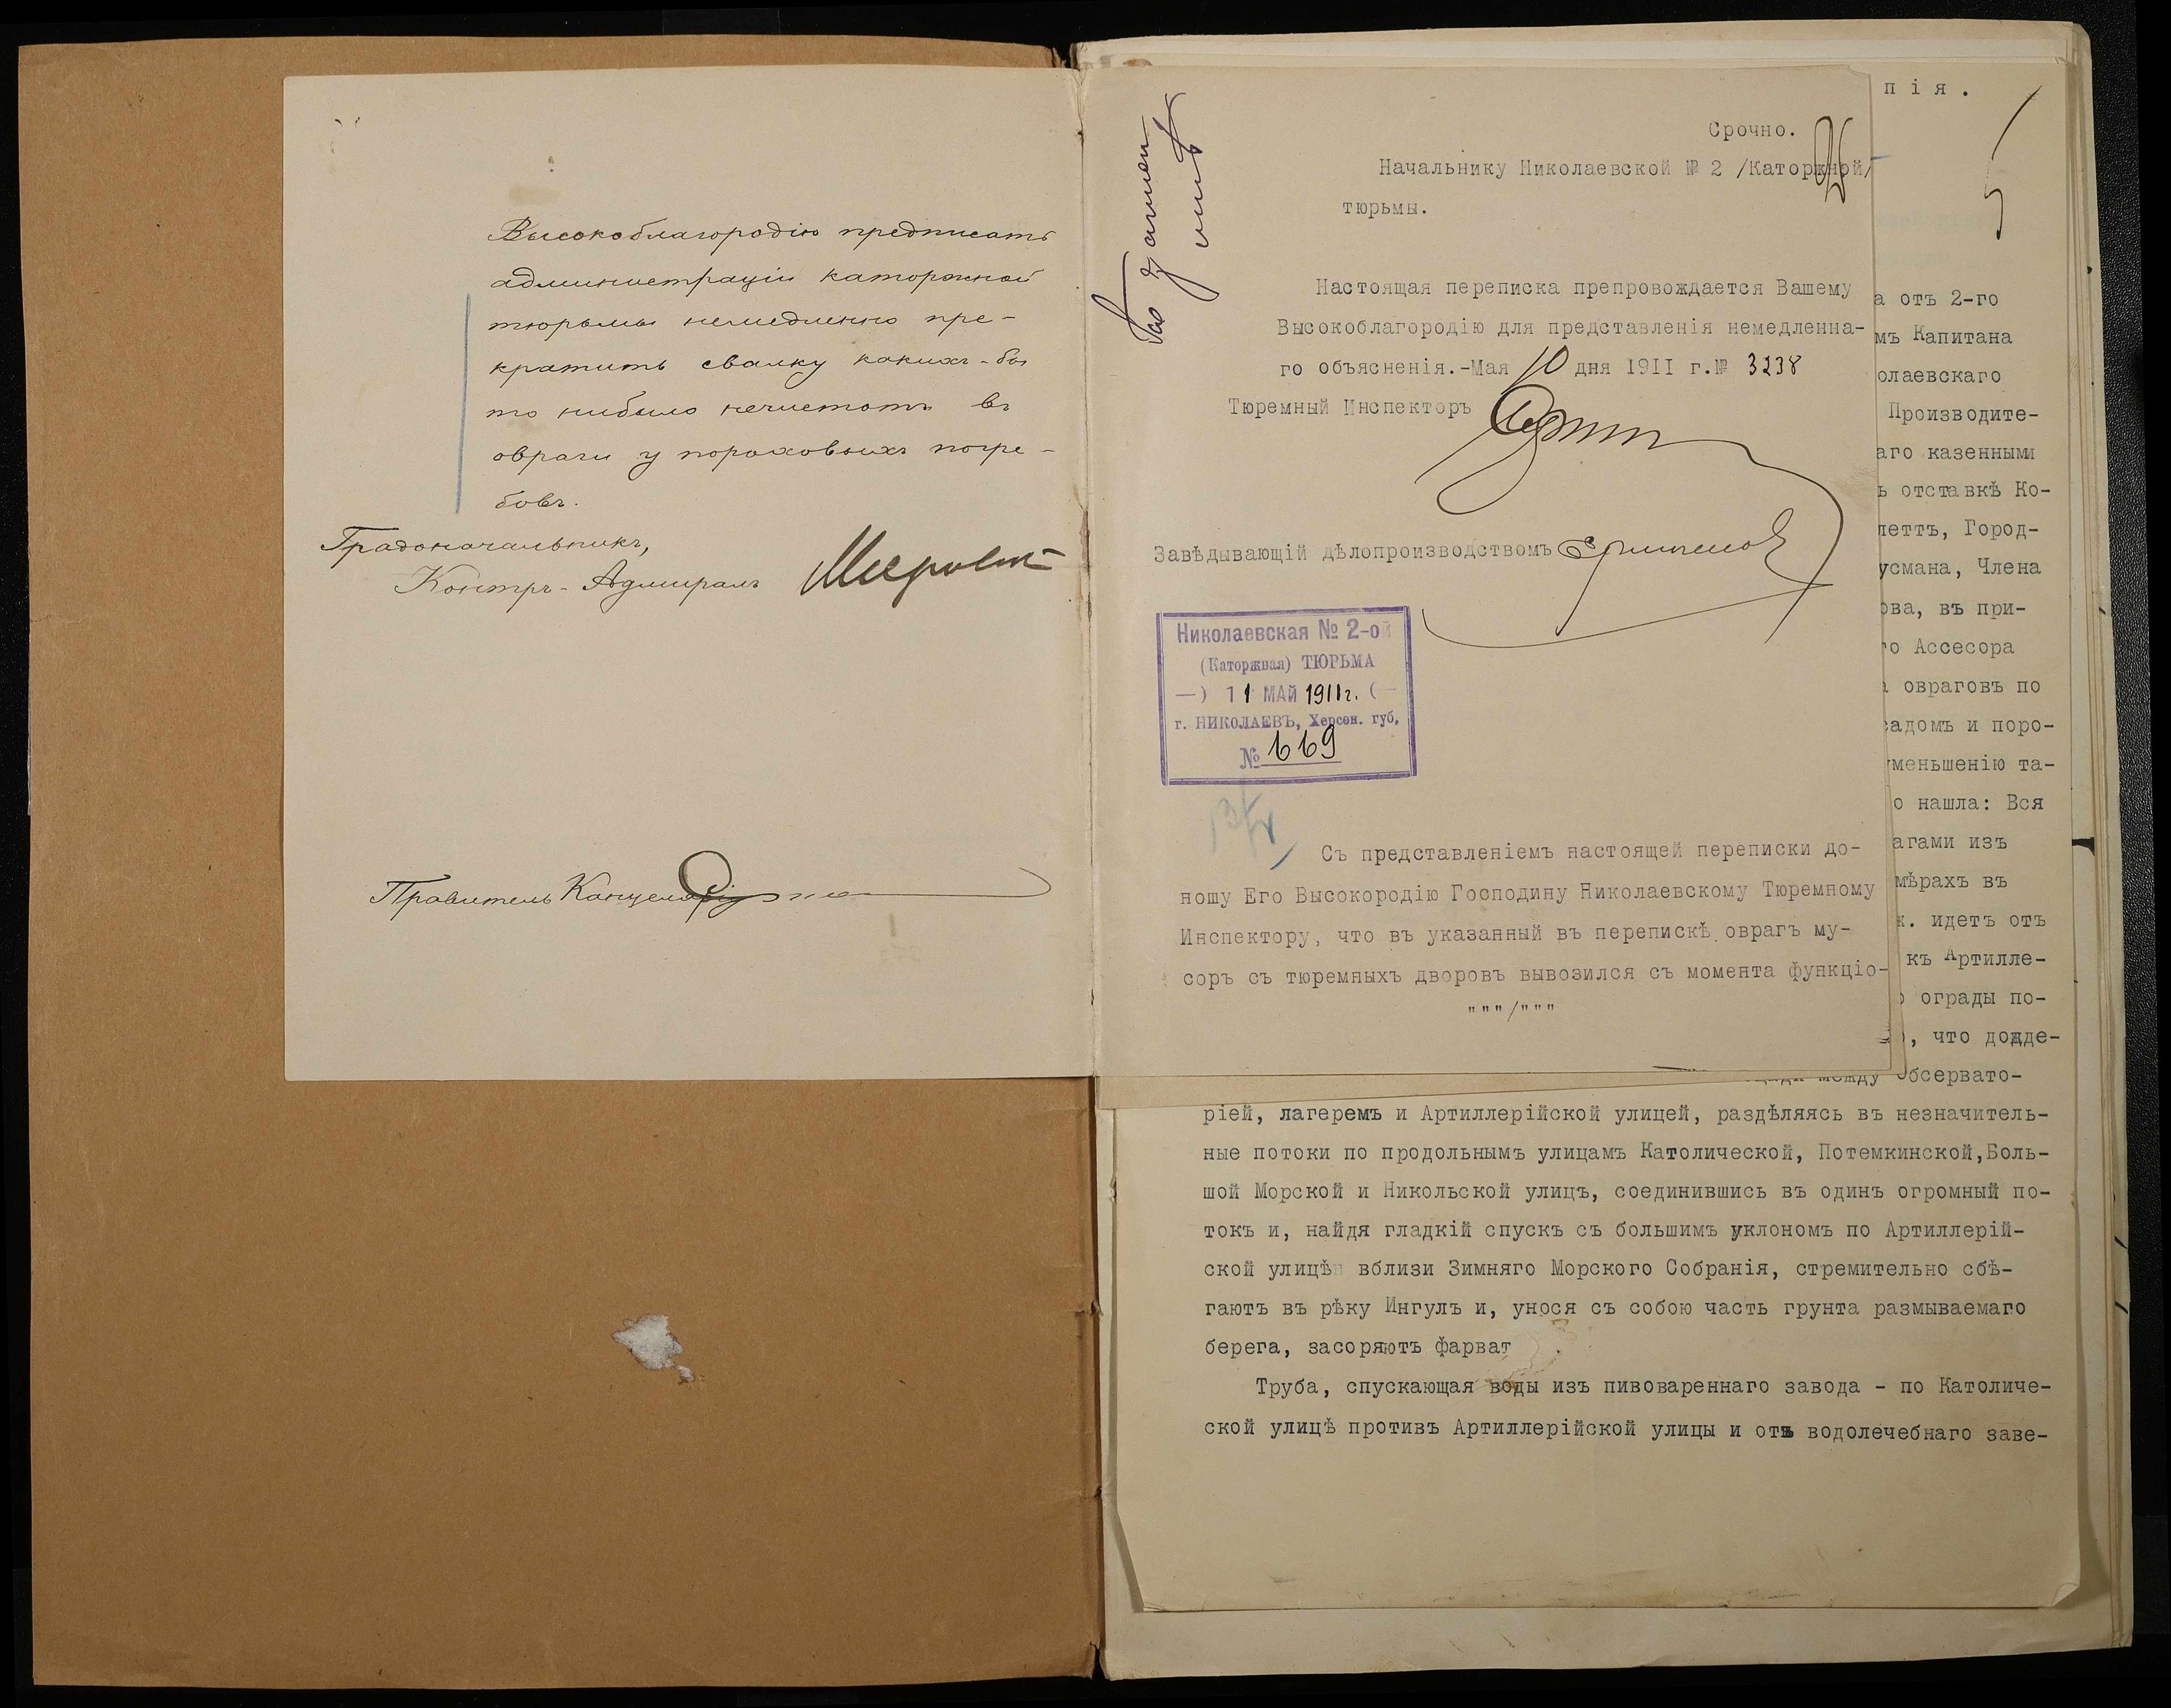 Высокоблагородію предписать
администраціи каторжной
тюрьмы немедленно пре-
кратить свалку какихъ-бы
то нибыло нечистотъ въ
овраги у пороховыхъ погре-
бовъ.
Градоначальникъ,
Контръ-Адмиралъ
Правитель Канцеляріи
Срочно.
Начальнику Николаевской № 2 /Каторжной/
тюрьмы.
Настоящая переписка препровождается Вашему
Высокоблагородію для представленія немедленна-
го объясненія.-Мая 10 дня 1911 г.№ 3238
Тюремный Инспекторъ
Завѣдывающій дѣлопроизводствомъ
Николаевская № 2-ой
(Каторжная) ТЮРЬМА
—) 11 МАЙ 1911г. (—
г. НИКОЛАЕВЪ, Херсон. губ.
№ 669
Съ представленіемъ настоящей переписки до-
ношу Его Высокородію Господину Николаевскому Тюремному
Инспектору, что въ указанный въ перепискѣ оврагъ му-
соръ съ тюремныхъ дворовъ вывозился съ момента функціо-
"""/"""
пія.
а отъ 2-го
мъ Капитана
олаевскаго
Производите-
аго казенными
ь отставкѣ Ко-
леттъ, Город-
усмана, Члена
ова, въ при-
го Ассесора
овраговъ по
адомъ и поро-
меньшенію та-
о нашла: Вся
агами изъ
мѣрахъ въ
ж. идетъ отъ
къ Артилле-
ограды по-
, что дожде-
между Обсервато-
ріей, лагеремъ и Артиллерійской улицей, раздѣляясь въ незначитель-
ные потоки по продольнымъ улицамъ Католической, Потемкинской,Боль-
шой Морской и Никольской улицъ, соединившись въ одинъ огромный по-
токъ и, найдя гладкій спускъ съ большимъ уклономъ по Артиллерій-
ской улицѣ вблизи Зимняго Морского Собранія, стремительно сбѣ-
гаютъ въ рѣку Ингулъ и, унося съ собою часть грунта размываемаго
берега, засоряютъ фарват
Труба, спускающая воды изъ пивовареннаго завода - по Католиче-
ской улицѣ противъ Артиллерійской улицы и отъ водолечебнаго заве-